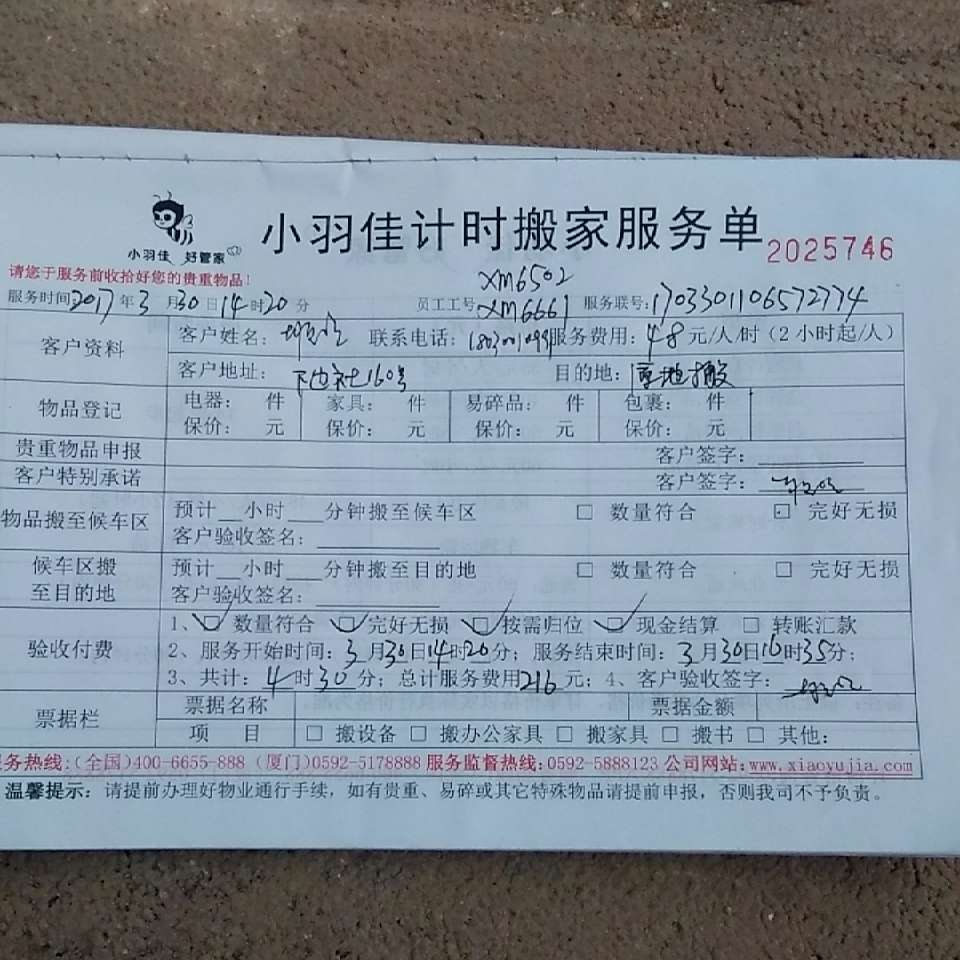 小羽佳 好管家
小羽佳计时搬家服务单 2025746
请您于服务前收拾好您的贵重物品!
XM6502
服务时间 2017年3月30日14时20分 员工工号 XM6661 服务联号: 1703301106572774
客户资料 客户姓名: 联系电话: 服务费用: 48元/人/时(2小时起/人)
客户地址: 160号 目的地: 原地搬
物品登记 电器: 件 家具: 件 易碎品: 件 包裹: 件
保价: 元 保价: 元 保价: 元 保价: 元
贵重物品申报 客户签字:
客户特别承诺 客户签字:
物品搬至候车区 预计__小时__分钟搬至候车区 □ 数量符合 □ 完好无损
客户验收签名:
候车区搬至目的地 预计__小时__分钟搬至目的地 □ 数量符合 □ 完好无损
客户验收签名:
验收付费 1、☑ 数量符合 ☑ 完好无损 ☑ 按需归位 ☑ 现金结算 □ 转账汇款
2、服务开始时间: 3月30日14时20分; 服务结束时间: 3月30日16时35分;
3、共计: 4时30分; 总计服务费用216元; 4、客户验收签字:
票据栏 票据名称 票据金额
项 目 □ 搬设备 □ 搬办公家具 □ 搬家具 □ 搬书 □ 其他:
务热线:(全国)400-6655-888 (厦门)0592-5178888 服务监督热线:0592-5888123 公司网站:www.xiaoyujia.com
温馨提示: 请提前办理好物业通行手续,如有贵重、易碎或其它特殊物品请提前申报,否则我司不予负责。